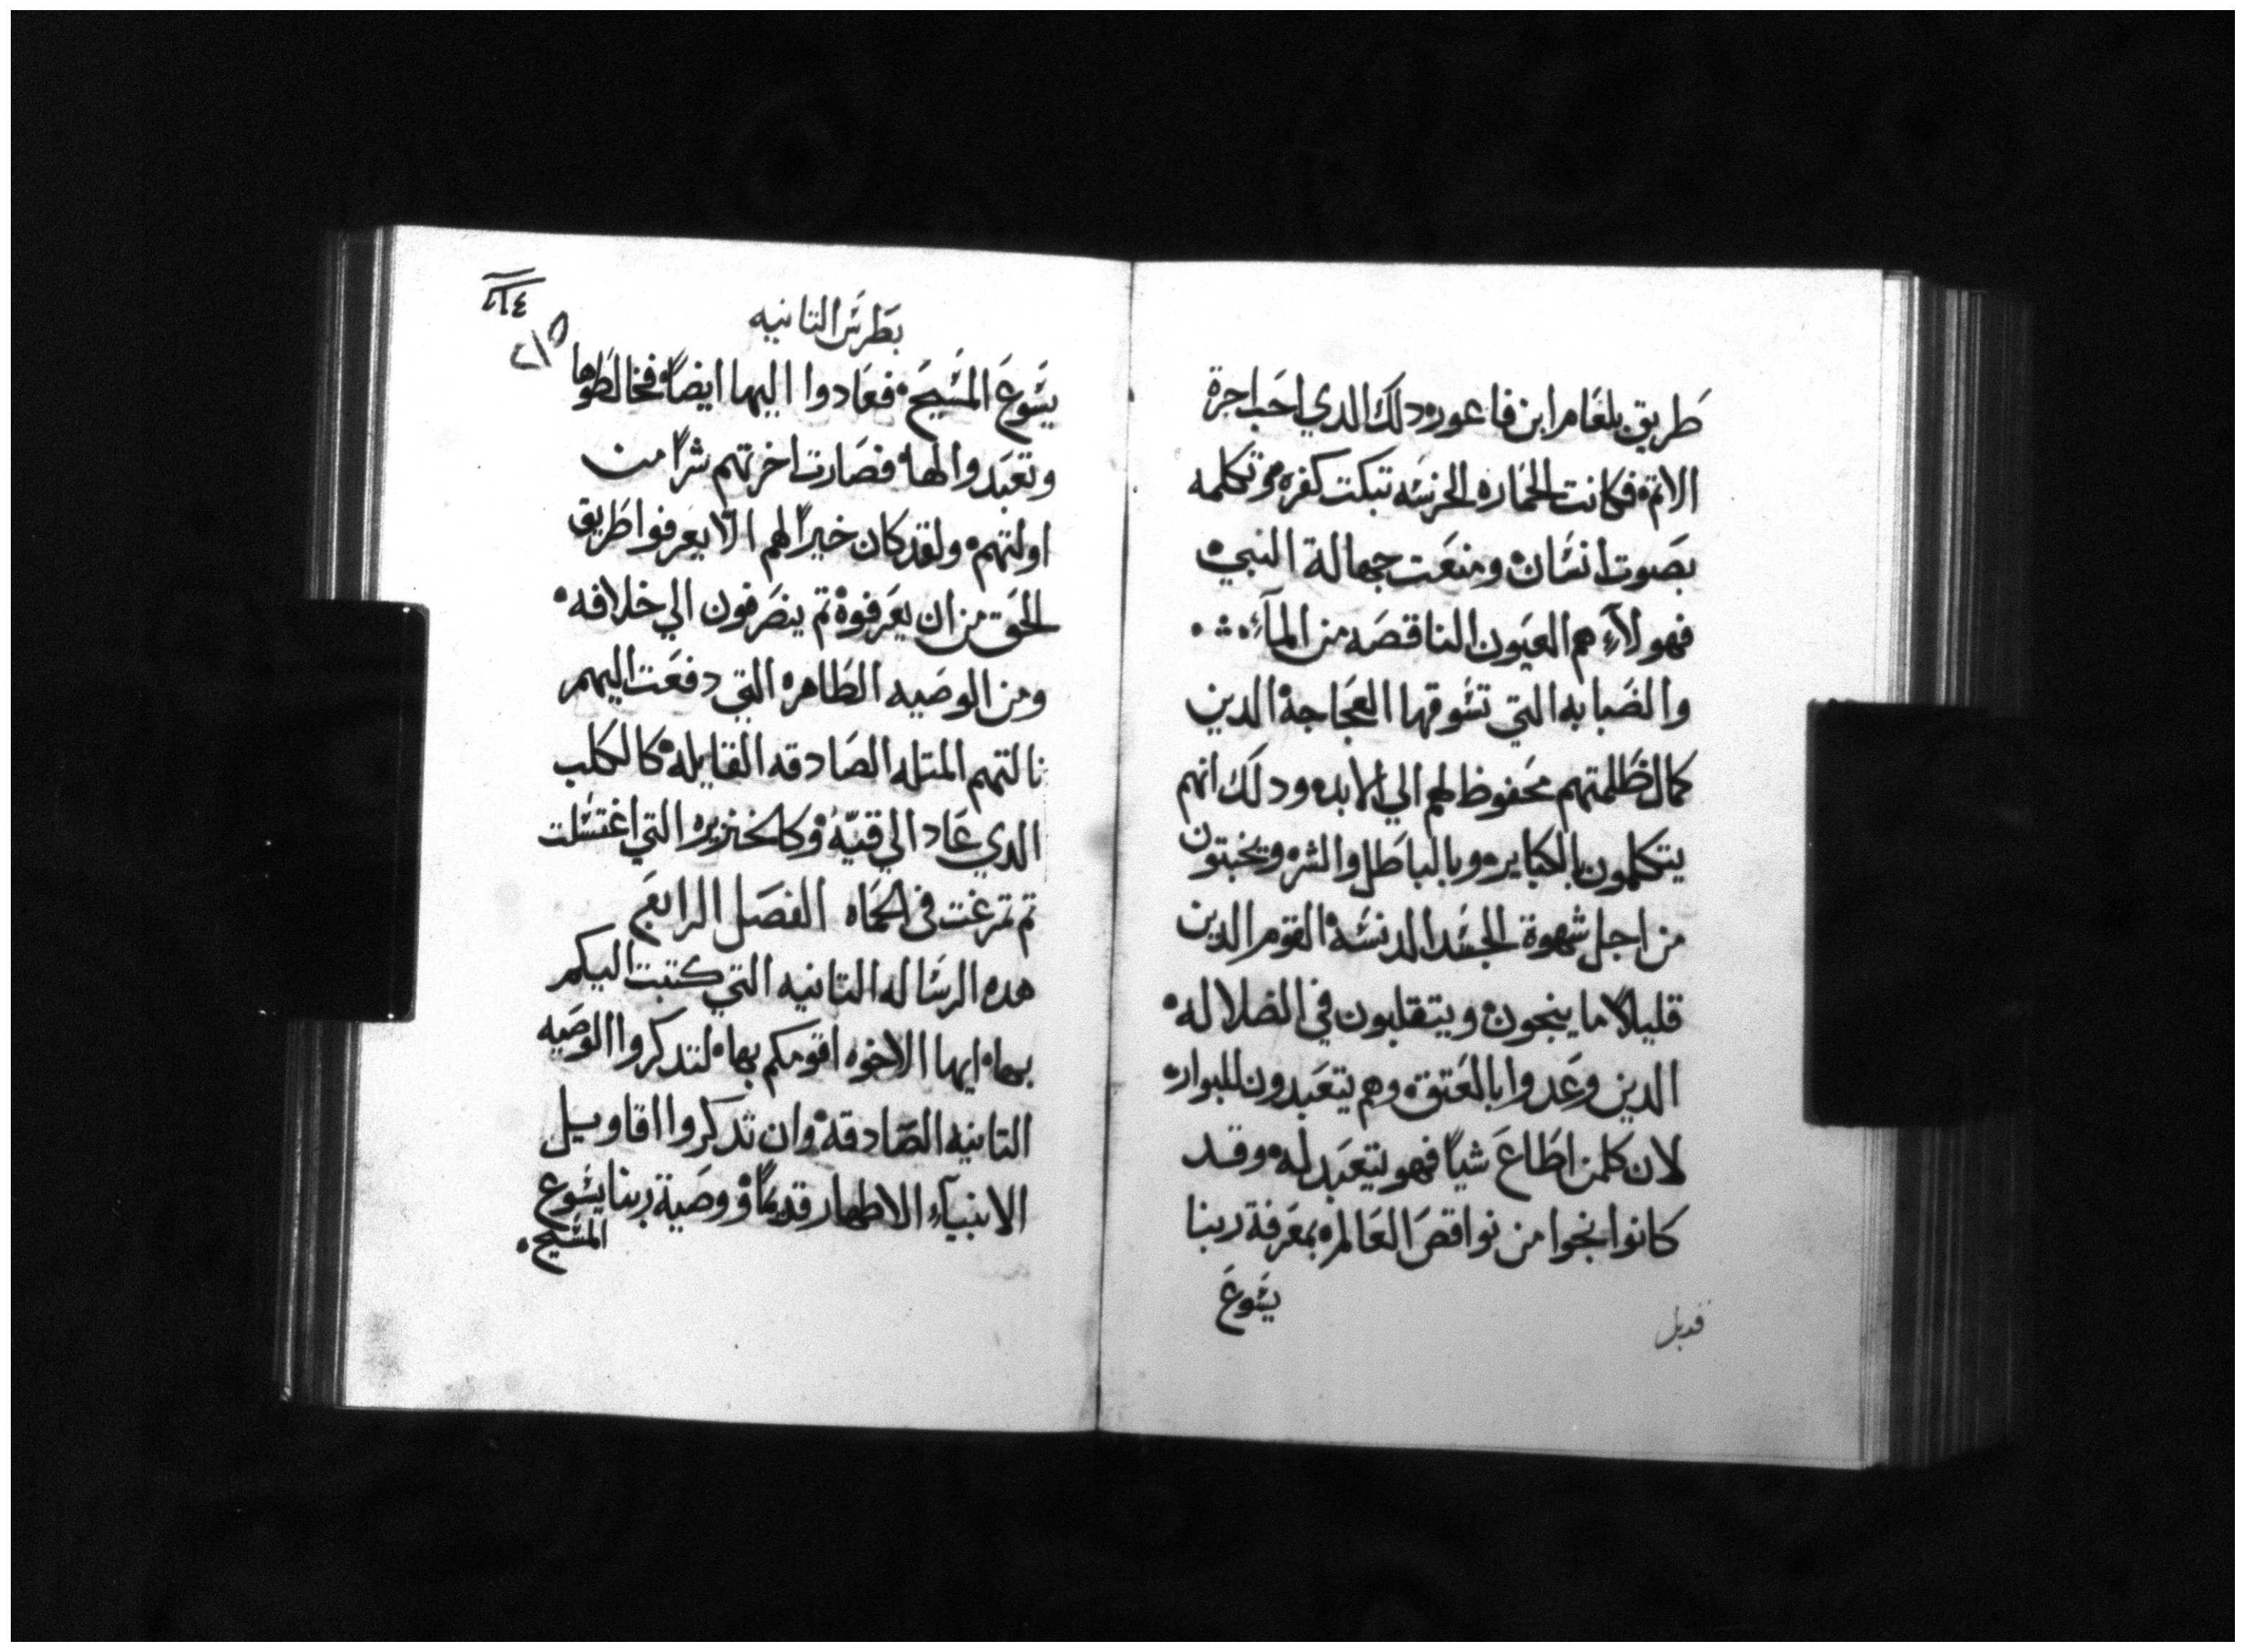 طريق بلعام ابن فاعور ودلك الدي احب اجرة
الاتم فكانت الحماره الخرسه تبكت كفره وتكلمه
بصوت انسان ومنعت جهالة النبي
فهولآء هم العيون الناقصه من المآء
والضبابه التي تسوقها العجاجة الدين
كمال ظلمتهم محفوظ لهم الي الابد ودلك انهم
يتكلمون بالكبايره وبالباطل والشره ويخبتون
من اجل شهوة الجسد الدنسة القوم الدين
قليلاً ما ينجون ويتقلبون في الضلاله
الدين وعدوا بالعتق وهم يتعبدون للبوار
لان كلمن اطاع شياً فهو يتعبد له وقد
كانوا نجوا من نواقص العالم بمعرفة ربنا
يسوع
بطرس التانيه
يسوع المسيح فعادوا اليها ايضاً فخالطوها
وتعبدوا لها فصارت اخرتهم شراً من
اولتهم ولقد كان خيراً لهم الّا يعرفوا طريق
الحق من ان يعرفوه تم ينصرفون الي خلافه
ومن الوصيه الطاهره التي دفعت اليهم
نالتهم المتله الصادقه القايله كالكلب
الدي عاد الي قيّه وكالخنزيره التي اغتسلت
تم تمرغت في الحماه الفصل الرابع
هده الرساله التانيه التي كتبت اليكم
بها ايها الاخوه اقومكم بها لتدكروا الوصيه
التانيه الصادقة وان تدكروا اقاويل
الانبيآء الاطهار قديماً ووصية ربنا يسوع
المسيح